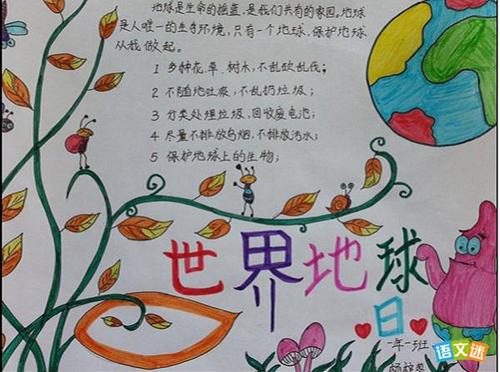 地球是生命的摇篮,是我们共有的家园。地球
是人唯一的生存环境,只有一个地球,保护地球
从我做起。
1 多种花、草、树木,不乱砍乱伐;
2 不随地吐痰,不乱扔垃圾;
3 分类处理垃圾,回收废电池;
4 尽量不排放乌烟,不排放污水;
5 保护地球上的生物;
世界地球
日
一年一班
语文迷